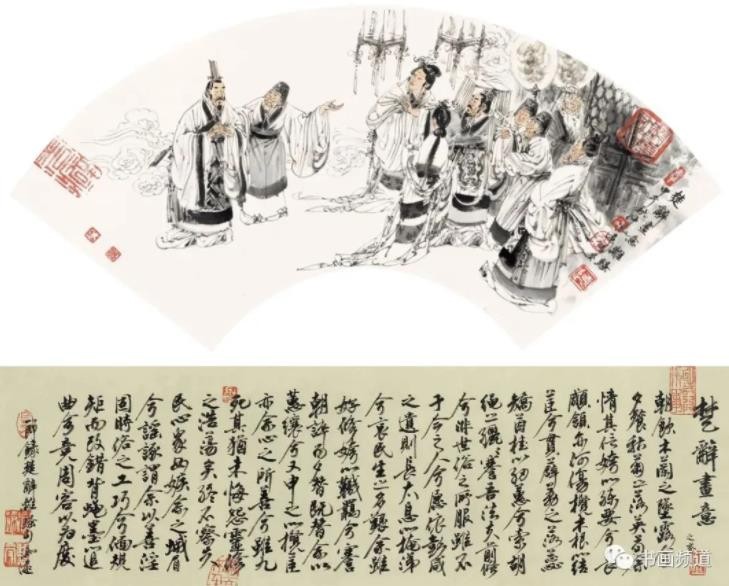 楚辭畫意
朝飲木蘭之墜露
夕餐秋菊之落英苟余
情其信姱以練要兮長
顑頷亦何傷攬木根以結
茝兮貫薜荔之落蕊
矯菌桂以紉蕙兮索胡
繩之纚纚謇吾法夫前脩
兮非世俗之所服雖不
於今之人兮願依彭咸
之遺則長太息以掩涕
兮哀民生之多艱余雖
好脩姱以鞿羈兮謇
朝誶而夕替既替余以
蕙纕兮又申之以攬茝
亦余心之所善兮雖九
死其猶未悔怨靈脩
之浩蕩兮終不察夫
民心眾女嫉余之蛾眉
兮謠諑謂余以善淫
固時俗之工巧兮偭規
矩而改錯背繩墨追
曲兮競周容以為度
節錄楚辭
书画频道